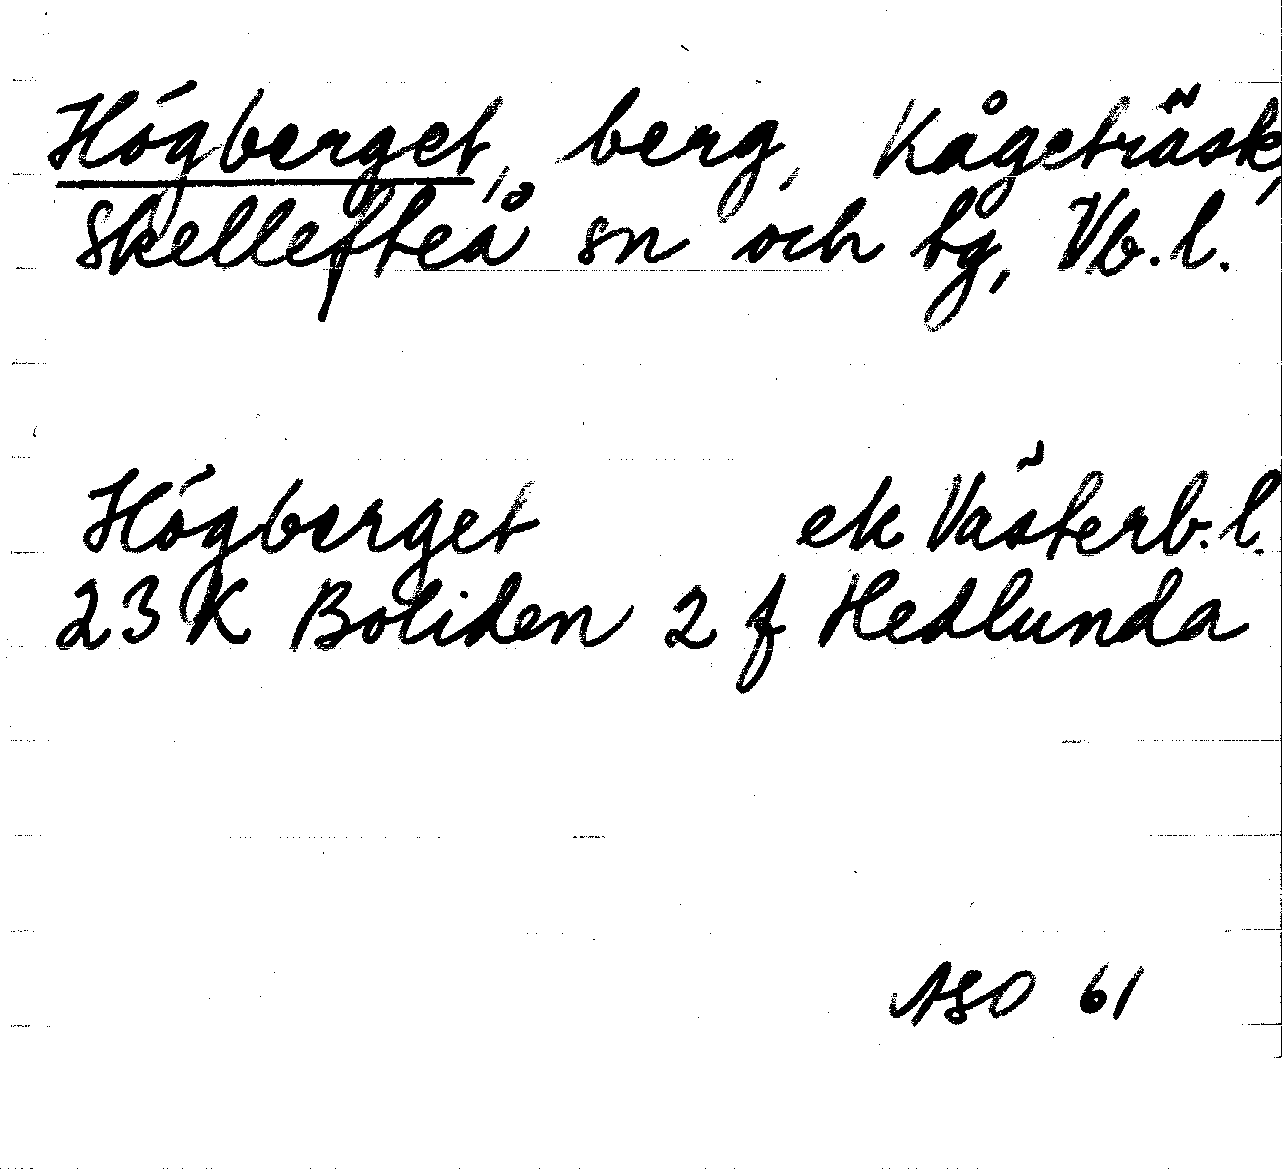 Högberget, berg, Kågeträsk,
Skellefteå sn och tg, Vb.l.
Högberget ek Västerb.l.
23 K Boliden 2 f Hedlunda
ASO 61